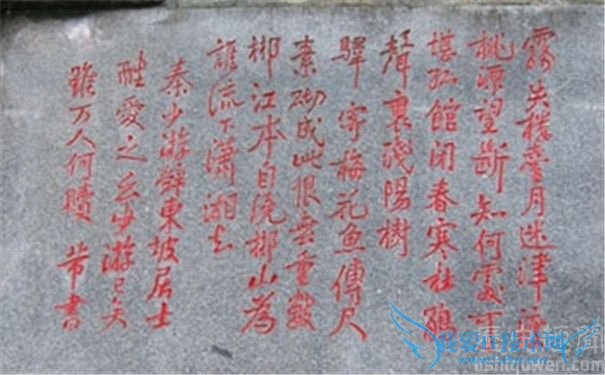 霧失樓臺月迷津渡
桃源望斷知何處可
堪孤館閉春寒杜鵑
聲裏殘陽樹
驛寄梅花魚傳尺
素砌成此恨無重數
郴江本自繞郴山為
誰流下瀟湘去
秦少游辭東坡居士
酷愛之云少游已矣
雖万人何贖 芾書
lishiquwen.com